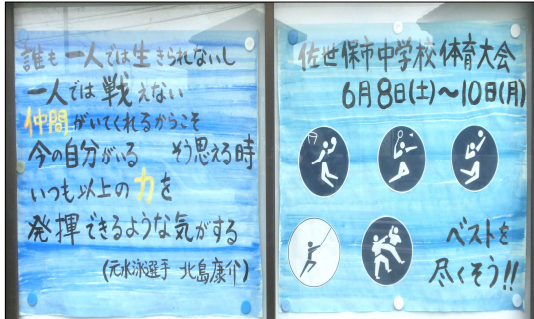 誰も一人では生きられないし
一人では戦えない
仲間がいてくれるからこそ
今の自分がいる そう思える時
いつも以上の力を
発揮できるような気がする
(元水泳選手 北島康介)
佐世保市中学校体育大会
6月8日(土)~10日(月)
ベストを
尽くそう!!